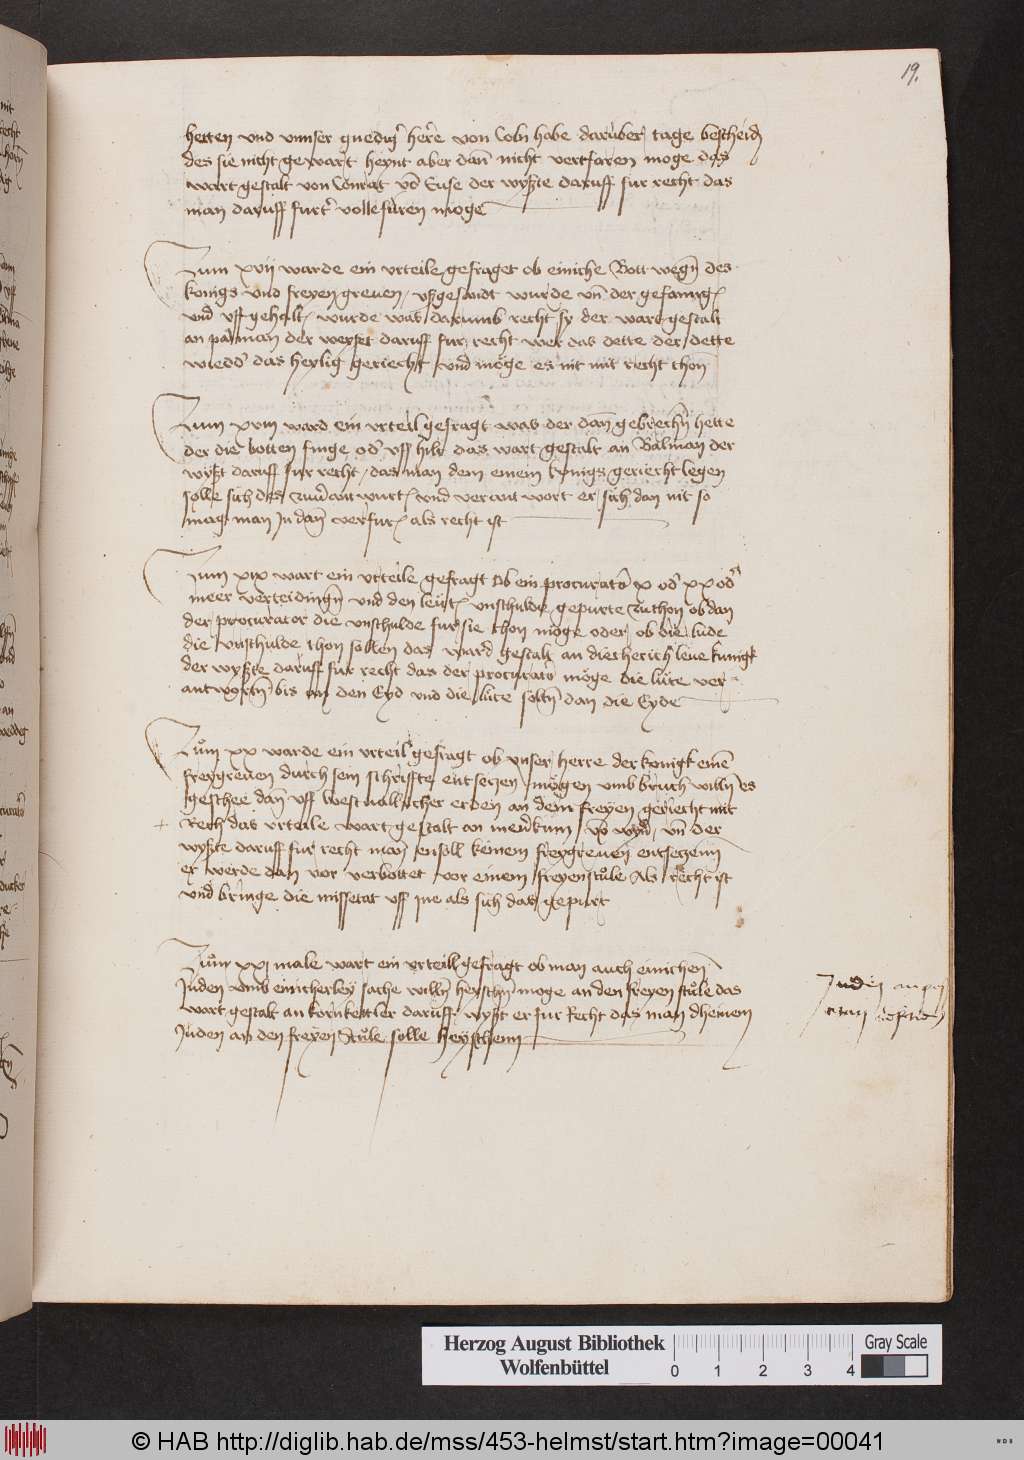 19.
hetten vnd vnnser gnedig' here von Coln habe daruber tage bescheid
des sie nicht gewart heynt aber dan nicht vertfaren moge das
wart gestalt von Conrat vo Suse der wyßte daruff fur recht das
man daruff furt' vollefuren moge
Zum xvij warde ein vrteile gefraget ob einiche Bott wegn des
konigs vnd freyen greuen vßgesandt wurde vn der gefang
vnd vff gehalt wurde was darumb recht sy der wart gestalt
an man der weyset daruff fur recht wer das dette der dette
wiedd' das heylig geriecht vnd möge es nit mit recht thon
Zum xviii ward ein vrteil gefragt was der dan gebrechn hette
der die botten finge od' vff hilt das wart gestalt an Balman der
wyßt daruff fur recht das man dem einem konigs geriecht legen
solle sich des zuuerantwurt vnd verantwort er sich dan nit so
mag man In dan verfur als recht ist
Zum xix wart ein vrteile gefragt Ob ein procurator x od' xx od'
meer verteidingn vnd den leut vnschulde gepurte zuthon ob dan
der procurator die vnschulde fur sie thon möge oder ob die lude
die vnschulde thon sollen das ward gestalt an dietherich leue kunigk
der wyßte daruff fur recht das der procurator möge die lute ver
antwortn bis an den Eyd vnd die lute soltn dan die Eyde
Zum xx warde ein vrteil gefragt ob vnser herre der konigk eine
freygreuen durch sein schriffte entseczen mögen vmb bruch willn es
geschee dan vff westuallischer erden an dem freyen geriecht mit
Rech das vrteile wart gestalt an vn der
wyßte daruff fur recht man ensoll keinem freygreuen entseczenn
er werde dan vor verbottet vor einem freyenstule Als recht ist
vnd bringe die missetat vff yne als sich das gepurt
Zum xxj male wart ein vrteill gefragt ob man auch einichen
Juden vmb einicherley sache willn heyschn moge an den freyen stule das
wart gestalt an kornkettler daruff wyßt er fur Recht das man dheinem
Juden an den freyen Stule solle heyschenn
Juden
Herzog August Bibliothek
Wolfenbüttel
0 1 2 3 4
Gray Scale
© HAB http://diglib.hab.de/mss/453-helmst/start.htm?image=00041